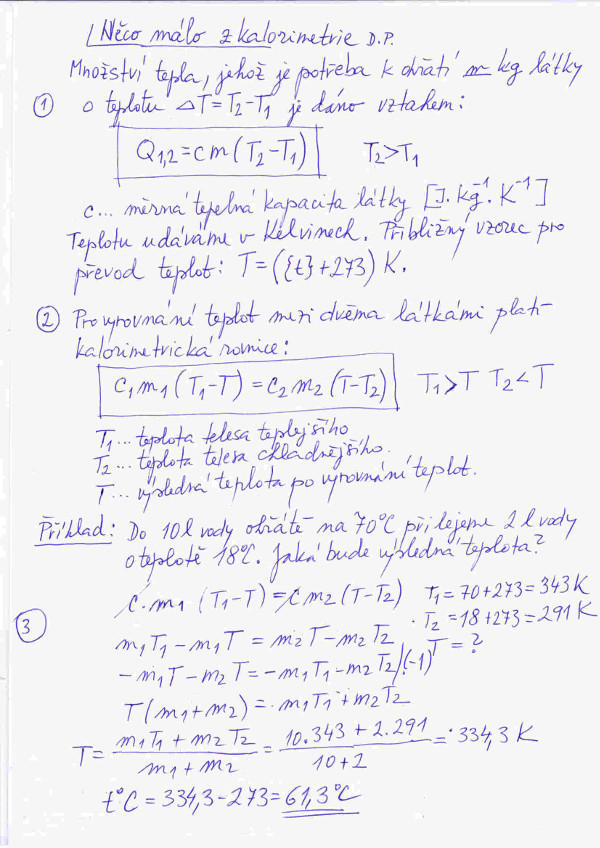 Něco málo z kalorimetrie D.P.
Množství tepla, jehož je potřeba k ohřátí m kg látky
① o teplotu △T=T₂-T₁ je dáno vztahem:
Q₁,₂=cm(T₂-T₁) T₂>T₁
c... měrná tepelná kapacita látky [J.kg⁻¹.K⁻¹]
Teplotu udáváme v Kelvinech. Přibližný vzorec pro
převod teplot: T=({t}+273) K.
② Pro vyrovnání teplot mezi dvěma látkámi platí
kalorimetrická rovnice:
c₁m₁(T₁-T)=c₂m₂(T-T₂) T₁>T T₂<T
T₁... teplota tělesa teplejšího
T₂... teplota tělesa chladnějšího.
T... výsledná teplota po vyrovnání teplot.
Příklad: Do 10l vody ohřáté na 70°C přilejeme 2l vody
o teplotě 18°C. Jaká bude výsledná teplota?
c.m₁(T₁-T)=cm₂(T-T₂) T₁=70+273=343K
③ T₂=18+273=291K
m₁T₁-m₁T=m₂T-m₂T₂ T=?
-m₁T-m₂T=-m₁T₁-m₂T₂/(-1)
T(m₁+m₂)=m₁T₁+m₂T₂
T=(m₁T₁+m₂T₂)/(m₁+m₂)=(10.343+2.291)/(10+2)=˙334,3K
t°C=334,3-273=61,3°C